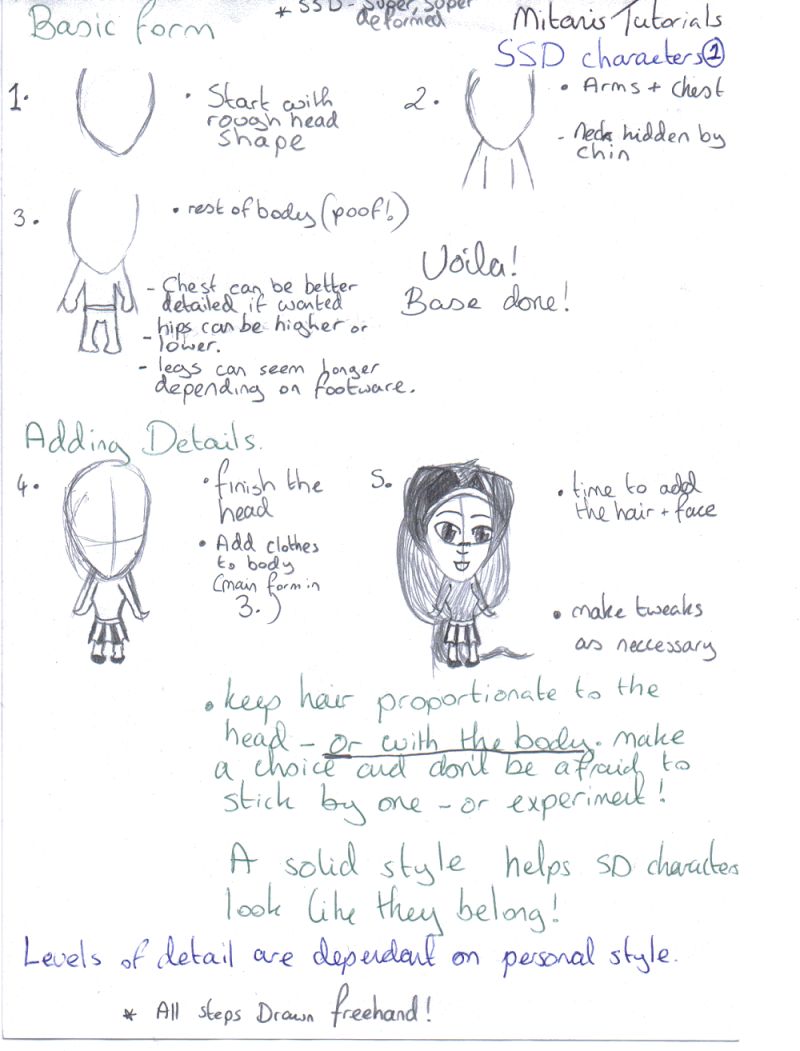 Basic form
* SSD - Super, super
deformed
Mitaris Tutorials
SSD characters 1
1.
• Start with
rough head
shape
2.
• Arms + chest
- neck hidden by
chin
3.
• rest of body (poof!)
- Chest can be better
detailed if wanted
- hips can be higher or
lower.
- legs can seem longer
depending on footware.
Voila!
Base done!
Adding Details.
4.
• finish the
head
• Add clothes
to body
(main form in
3.)
5.
• time to add
the hair + face
• make tweaks
as neccessary
• keep hair proportionate to the
head - or with the body. make
a choice and don't be afraid to
stick by one - or experiment!
A solid style helps SD characters
look like they belong!
Levels of detail are dependant on personal style.
* All steps Drawn freehand!